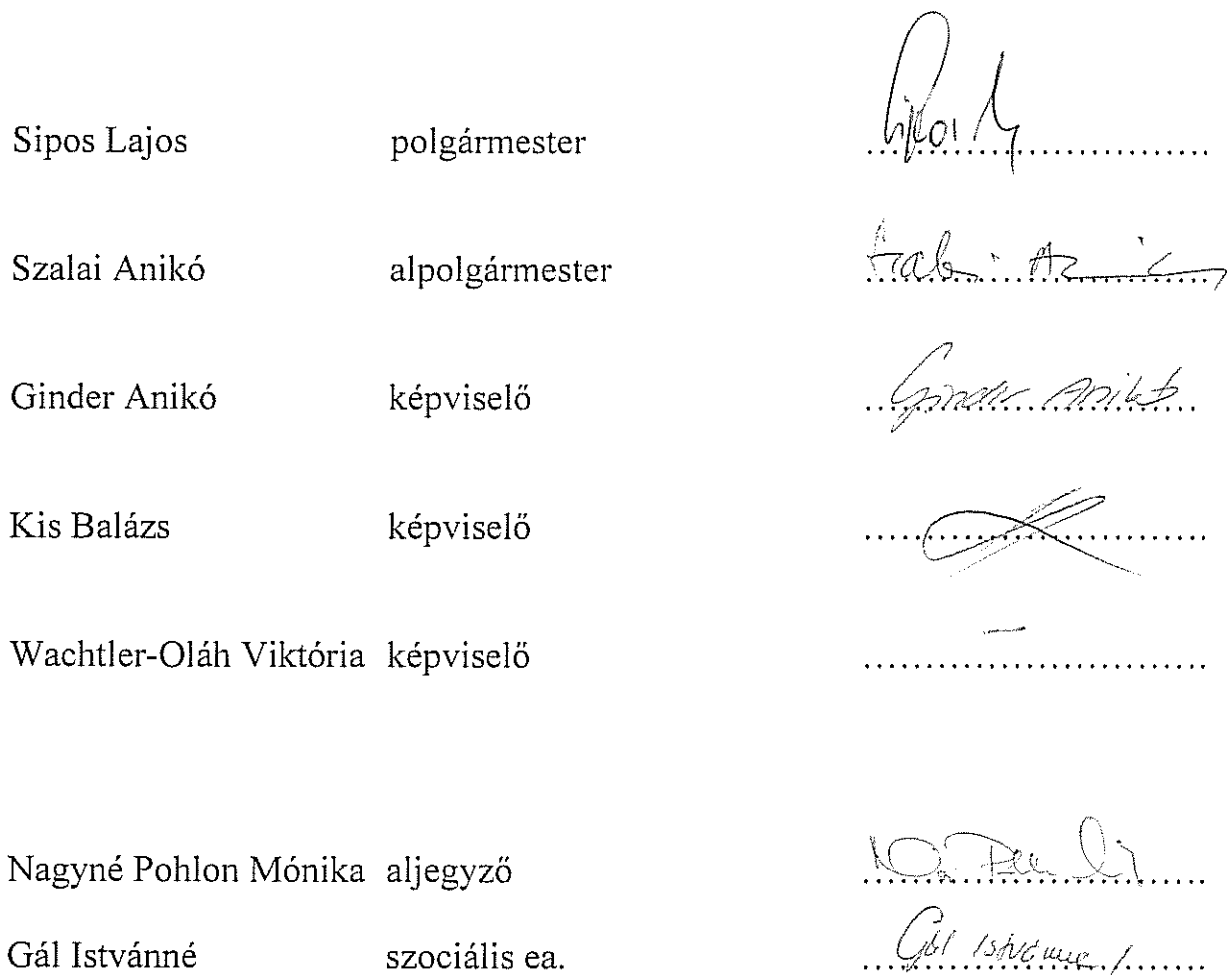 Sipos Lajos polgármester ............................
Szalai Anikó alpolgármester ............................
Ginder Anikó képviselő Ginder Anikó
Kis Balázs képviselő ............................
Wachtler-Oláh Viktória képviselő — ............................
Nagyné Pohlon Mónika aljegyző ............................
Gál Istvánné szociális ea. Gál Istvánné